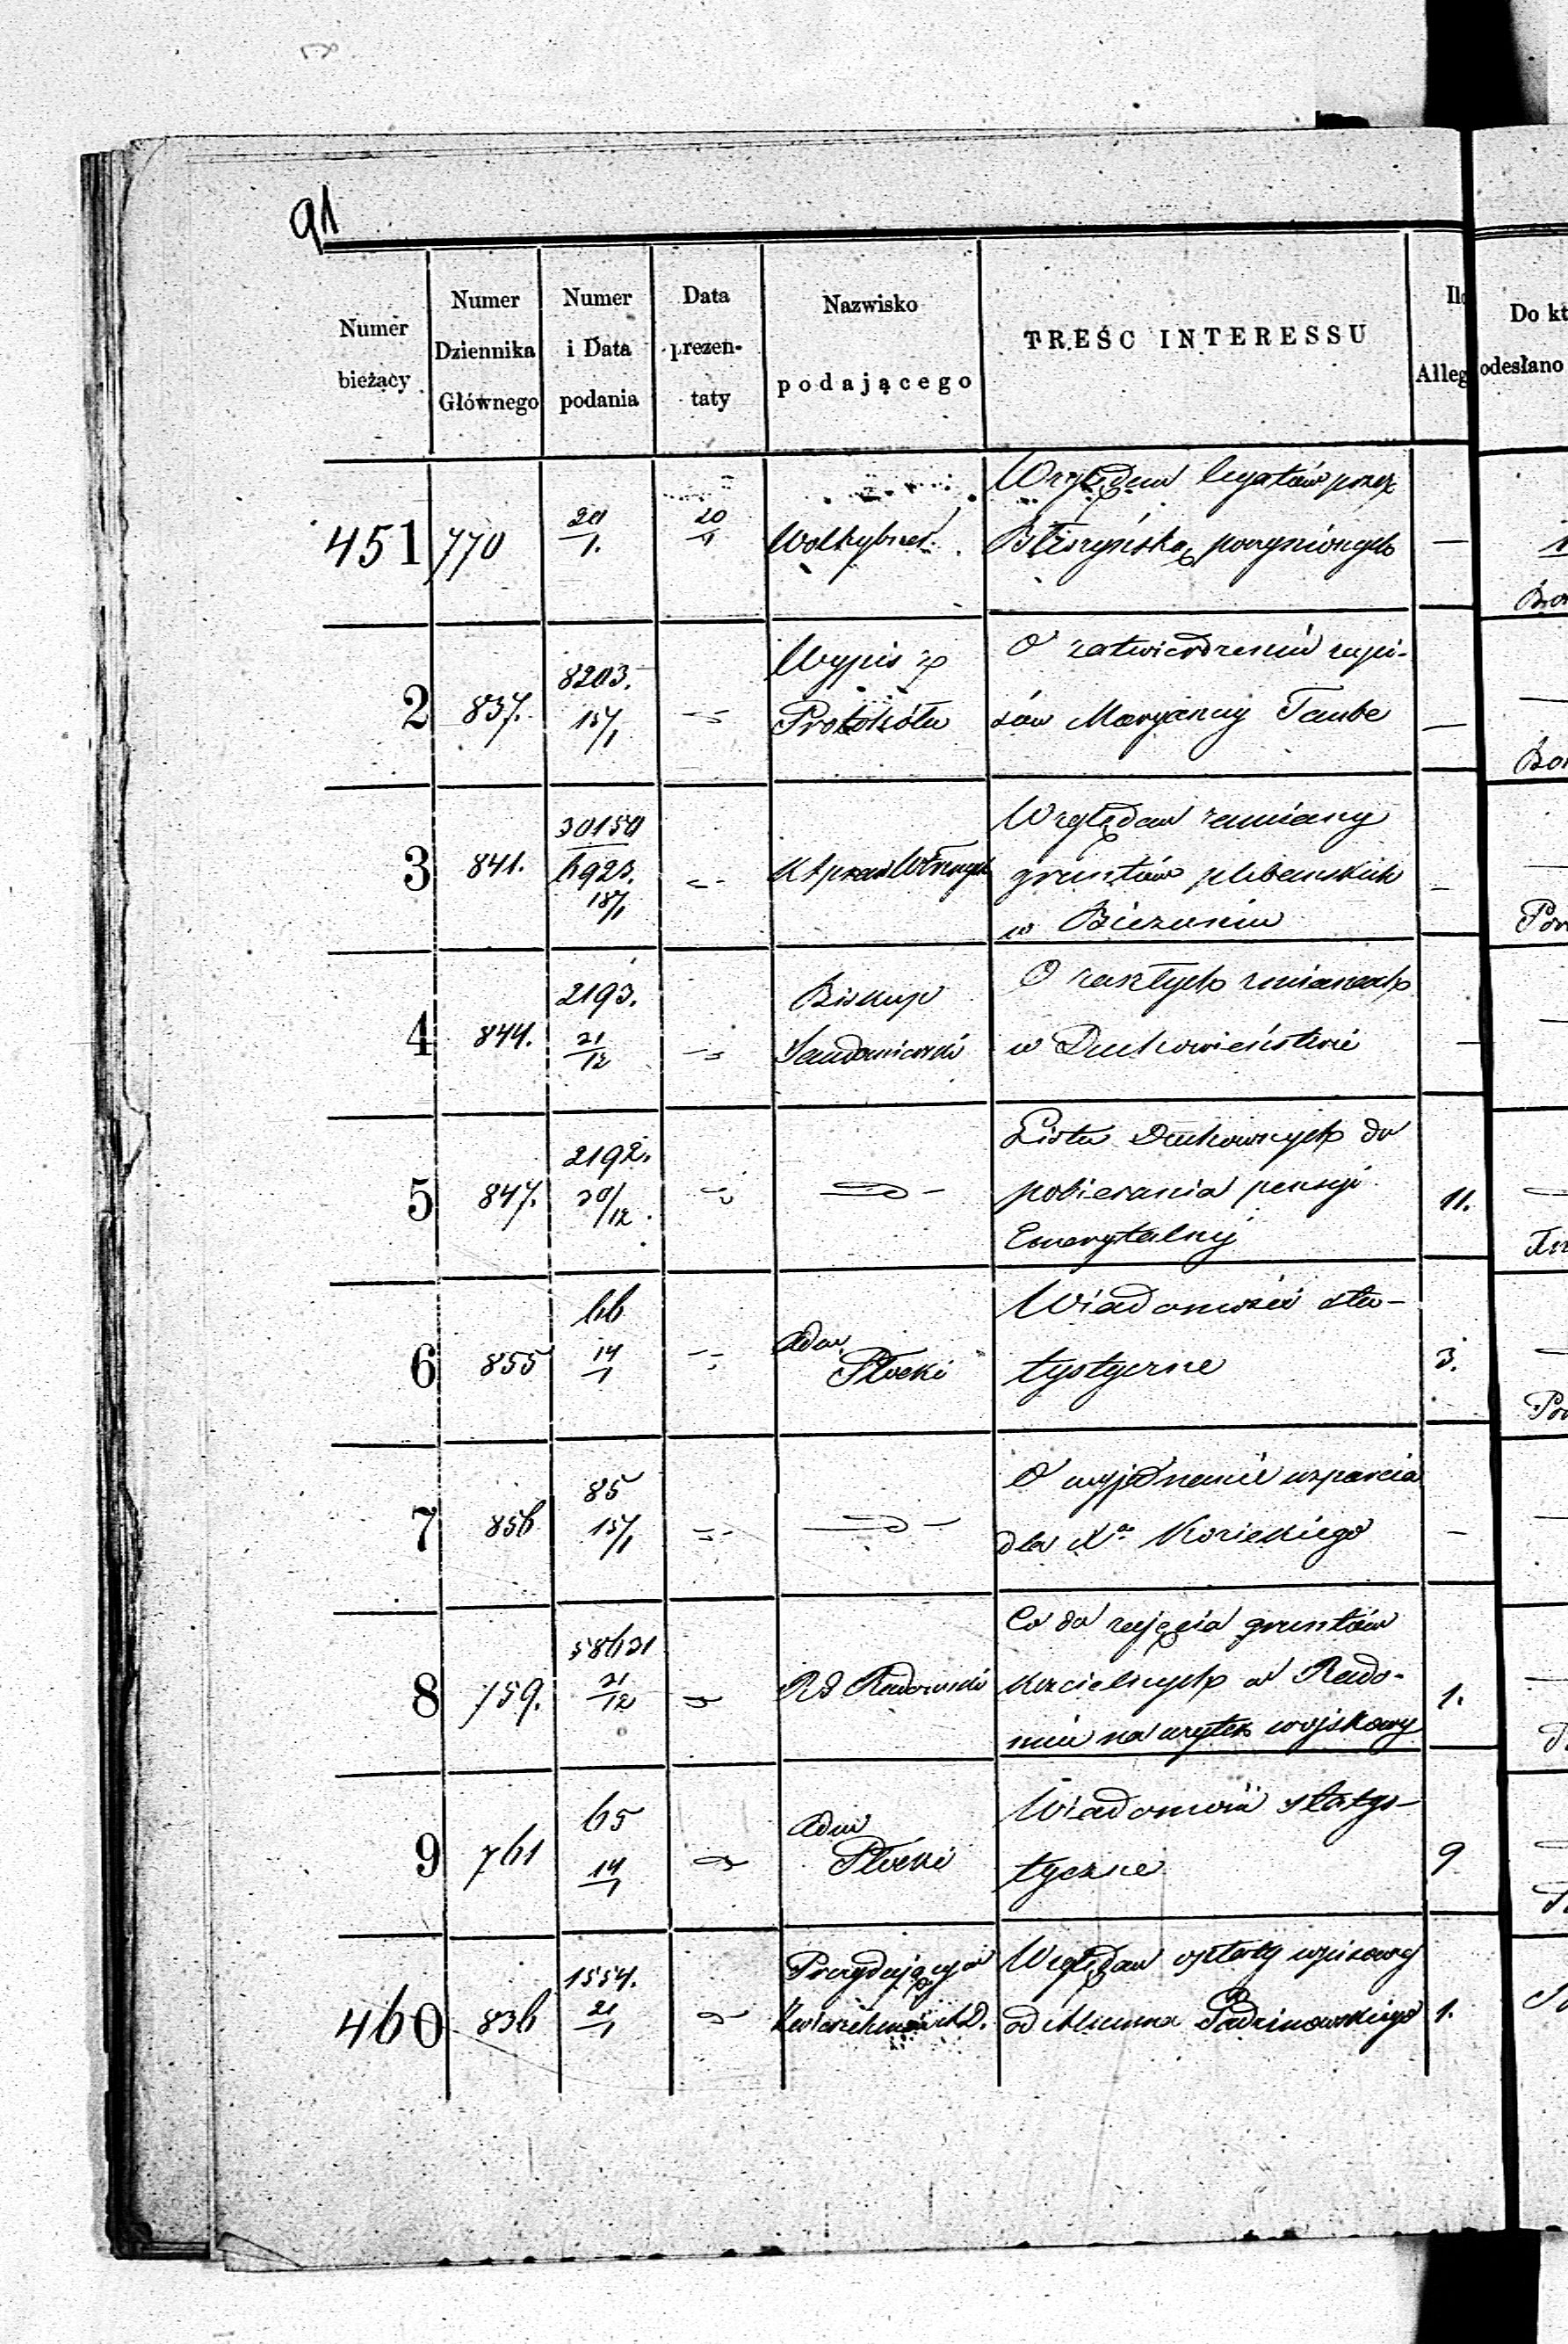 91
Numer bieżący
Numer Dziennika Głównego
Numer i Data podania
Data prezen- taty
Nazwisko podającego
TREŚĆ INTERESSU
Alleg
Do kt
odesłano
451 770 20/1. 20/1 Względem legatów przez
poczynionych —
2 837. 8203. 15/1 Wypis z Protokółu
O zatwierdzenie zapi-
sów Maryanny Taube —
3 841. 30150 6923. 18/1
Względem zamiany
gruntów plebańskich
w Bieżuniu —
4 844. 2193. 21/12 Biskup Sandomierski
O zaszłych zmianach
w Duchowieństwie —
5 847. 2192. 20/12
Lista Duchownych do
pobierania pensyi
Emerytalnej 11.
6 855 66 14/1 Adm. Płocki
Wiadomości sta-
tystyczne 3.
7 856 85 15/1
O wyjednanie wsparcia
dla Xa Kozickiego —
8 759. 58631 21/12 RG Radomski
Co do zajęcia gruntów
kościelnych w Rado-
miu na użytek wojskowy 1.
9 761 65 14/1 Adm Płocki
Wiadomości statys-
tyczne 9
460 836 1554. 21/1 Prezydujący w
Względem opłaty wpisowej
od Alumna 1.